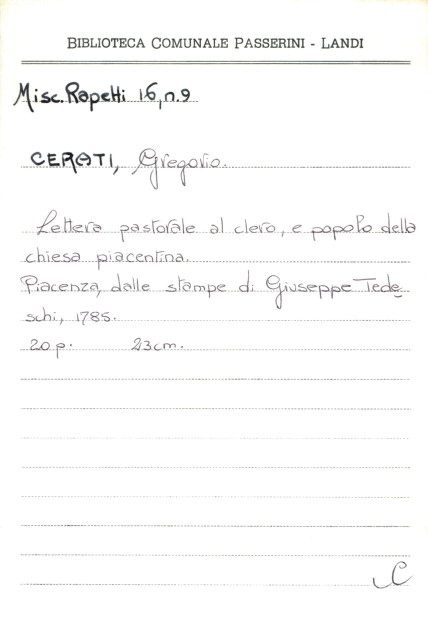 BIBLIOTECA COMUNALE PASSERINI - LANDI
Misc. Rapetti 16, n.9
CERATI, Gregorio.
Lettera pastorale al clero, e popolo della
chiesa piacentina.
Piacenza, dalle stampe di Giuseppe Tede
schi, 1785.
20 p. 23cm.
C